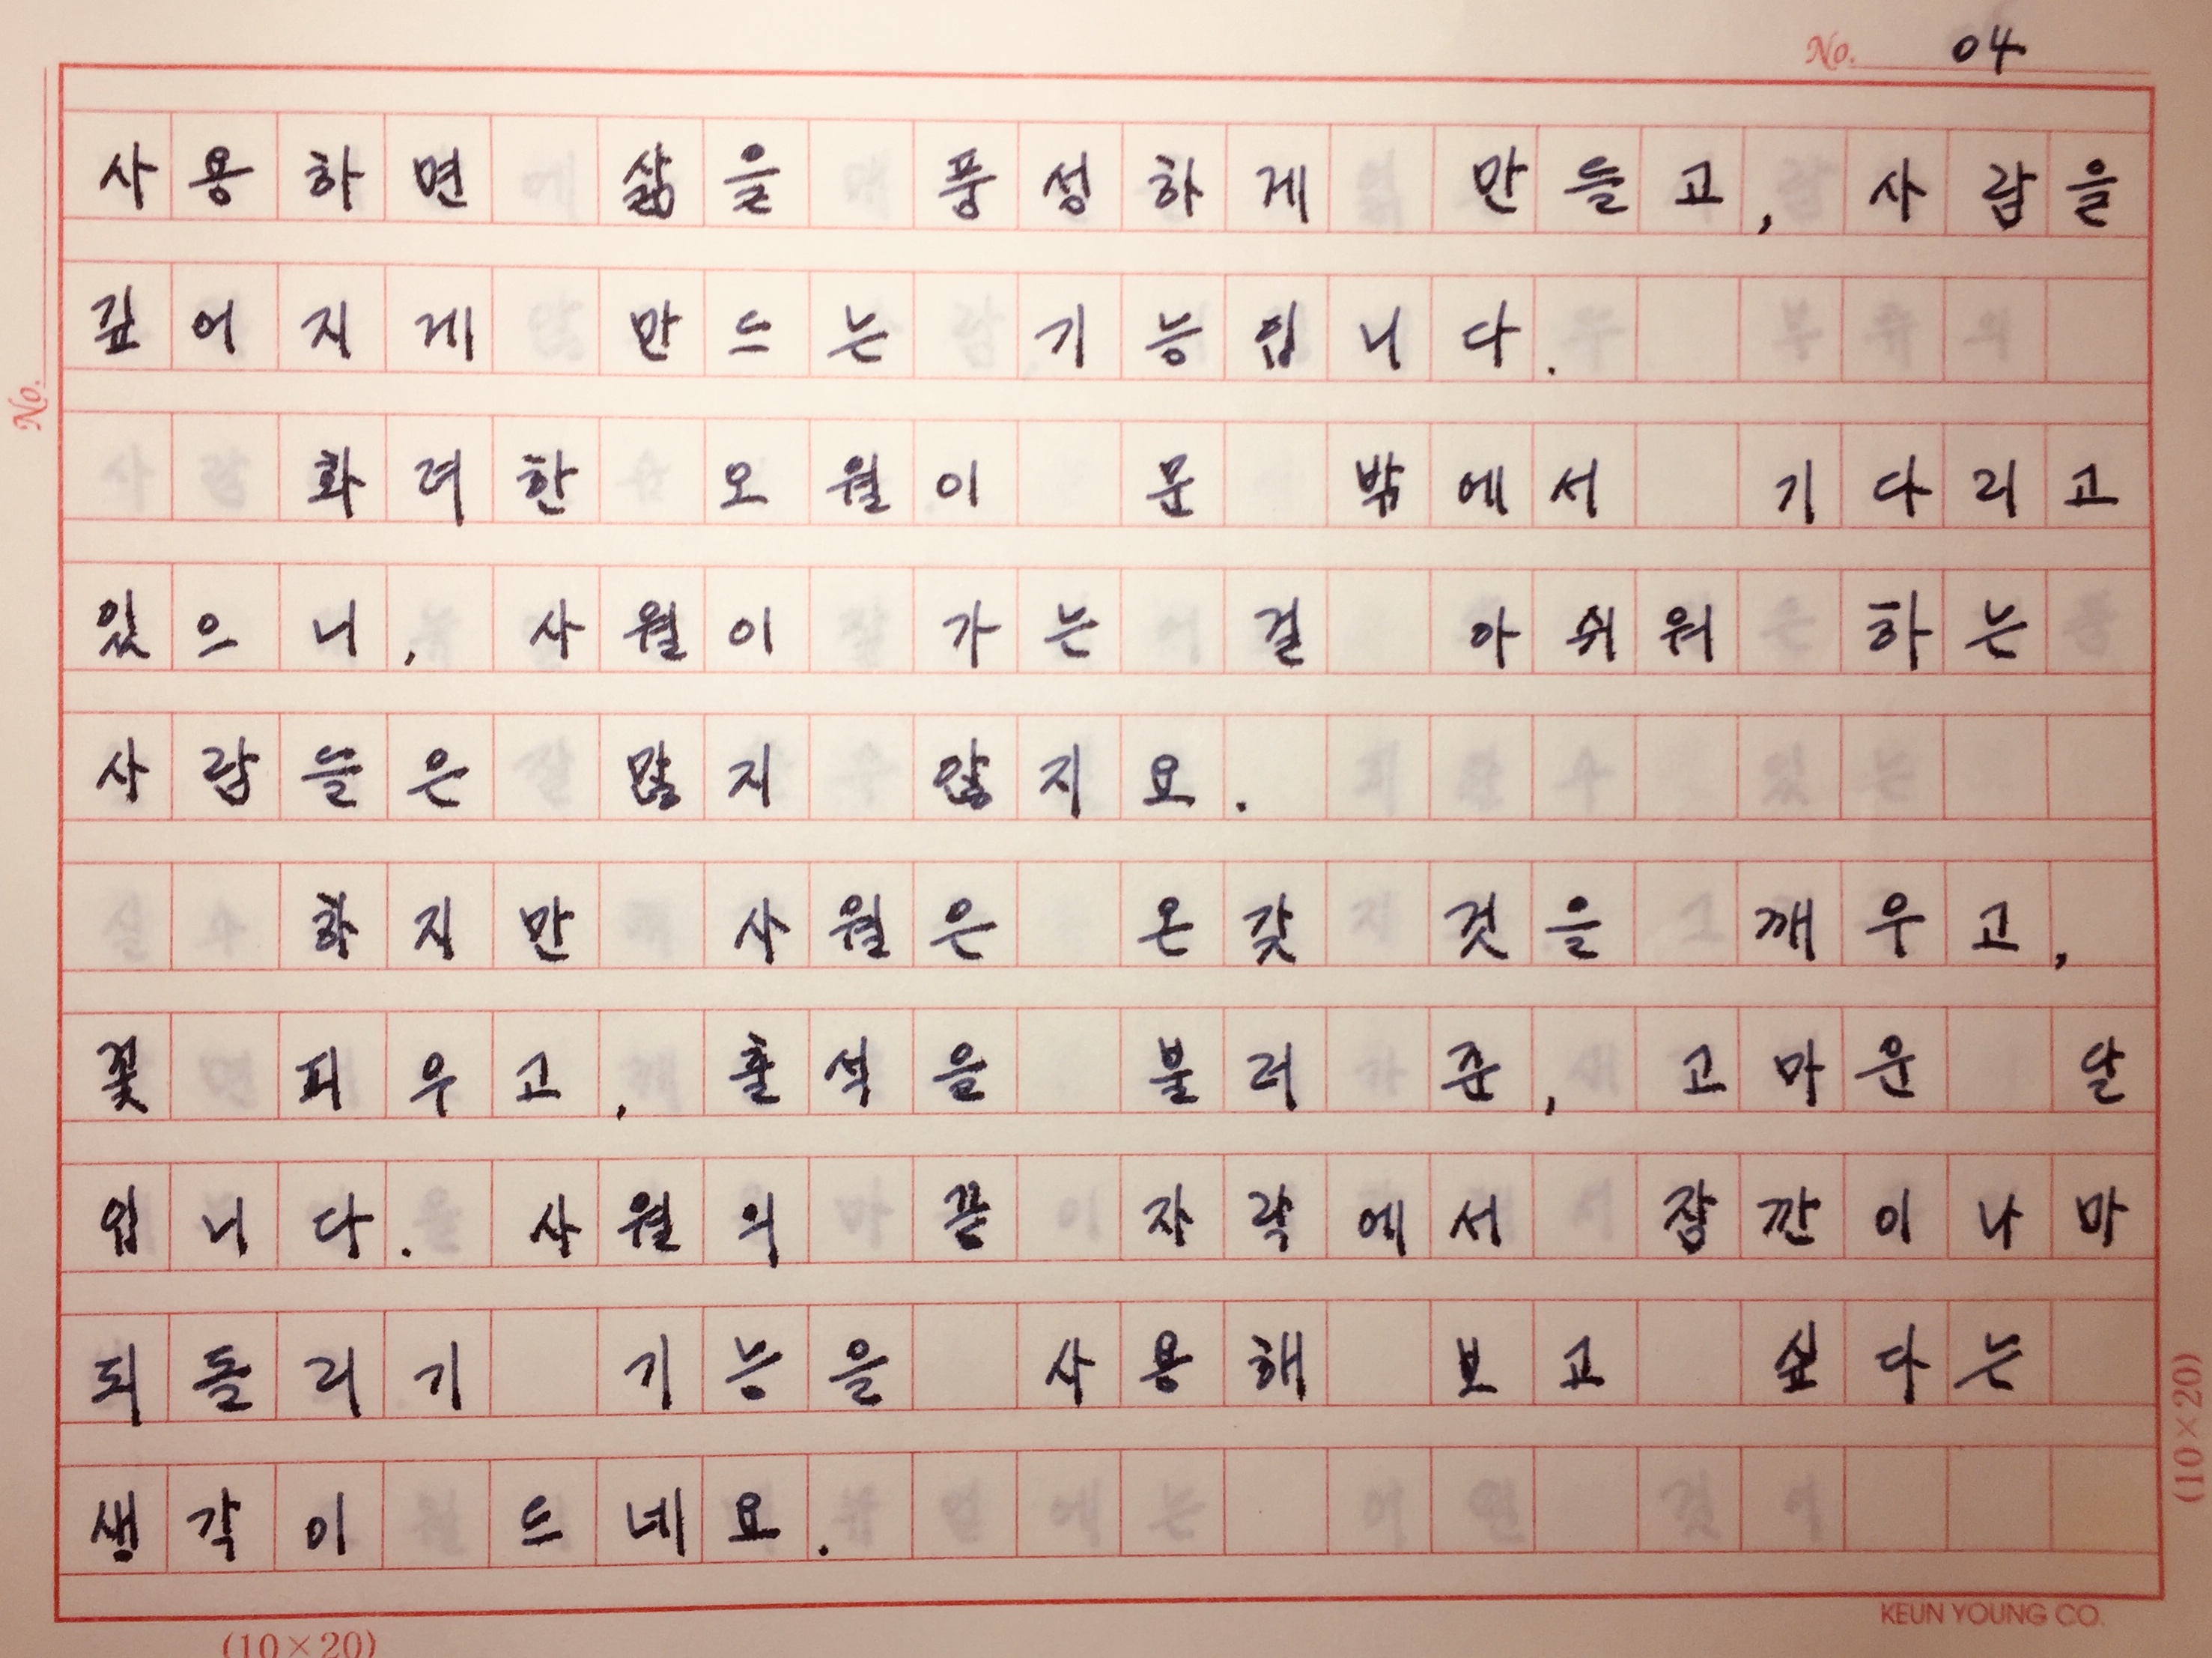 No. 04
사용하면 삶을 풍성하게 만들고, 사람을
깊어지게 만드는 기능입니다.
No.
화려한 오월이 문 밖에서 기다리고
있으니, 사월이 가는 걸 아쉬워 하는
사람들은 많지 않지요.
하지만 사월은 온갖 것을 깨우고,
꽃 피우고, 출석을 불러 준, 고마운 달
입니다. 사월의 끝 자락에서 잠깐이나마
되돌리기 기능을 사용해 보고 싶다는
생각이 드네요.
(10×20)
KEUN YOUNG CO.
(10×20)